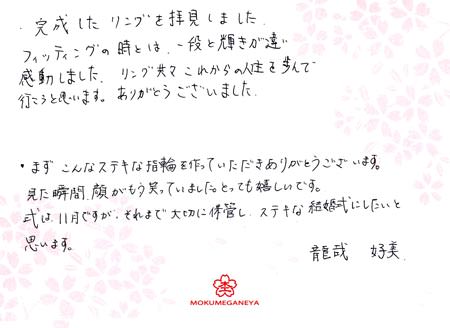 ・完成したリングを拝見しました。
フィッティングの時とは、一段と輝きが違い
感動しました。リング共々これからの人生を歩んで
行こうと思います。ありがとうございました。
・まずこんなステキな指輪を作っていただきありがとうございます。
見た瞬間、顔がもう笑っていました。とっても嬉しいです。
式は、11月ですが、それまで大切に保管し、ステキな結婚式にしたいと
思います。
龍哉 好美
MOKUMEGANEYA